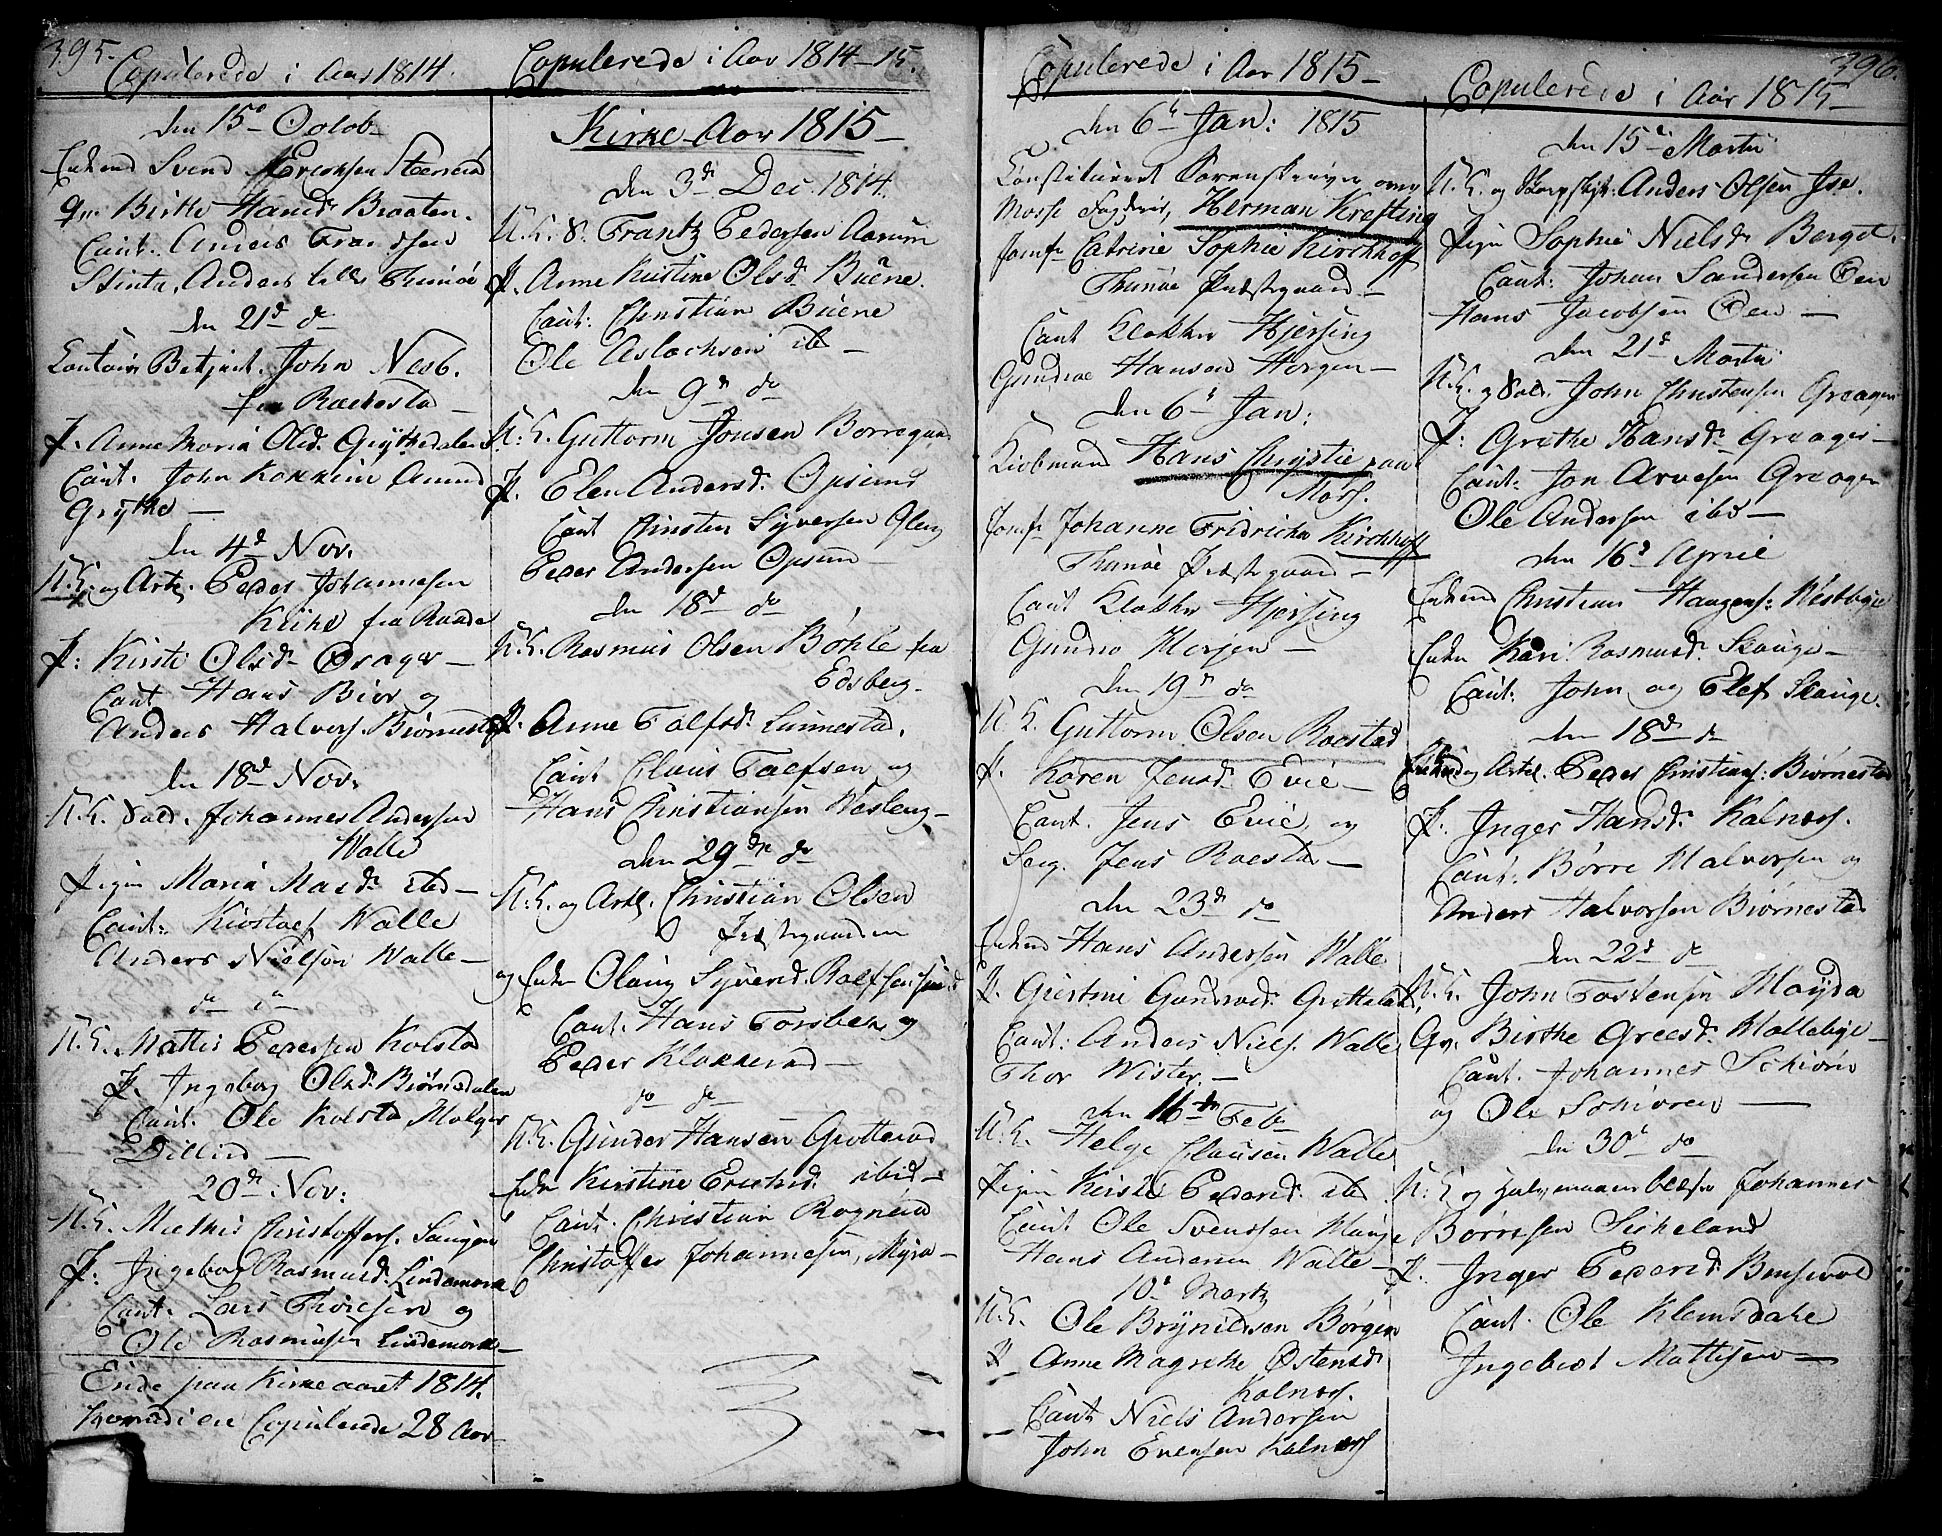 395.
Copulerede i Aar 1814.
den 15de Octob
Enkemd Svend Ericksen Steenrød
Birthe Hansd. Braaten.
Caut. Anders Frandsen
Anders Thunøe
den 21d do
Contoir Betjent. John Nesb.
fra Rackestad
P. Anne Maria Olsd. Grythedalen
Caut. John Amund
Grythe —
den 4d Nov.
U.K. og Artl. Peder Johannesen
fra Raade
P: Kirsti Olsd.
Caut Hans Biør og
Anders Halvors. Biørnestad
den 18d Nov.
U.K. Sold. Johannes Andersen
Walle
Pigen Maria Masd. ibd —
Caut: Kiostaef Walle
Anders Nielsen Walle —
do do
U.K. Mattis Pedersen Kolstad
P. Ingeborg Olsd. Biørnedalen
Caut. Ole Kolstad Holger
Dillerud —
20d Nov:
U.K. Mathis Christoffers. Saugen
P: Ingeborg Rasmusd. Lindemark
Caut. Lars Thoresen og
Ole Rasmusen Lindemark —
Ende paa Kirkeaaret 1814.
Copulerede 28
Copulerede i Aar 1814–15.
Kirke-Aar 1815 —
den 3di Dec. 1814.
U.K. S. Frantz Pedersen Aarum
P. Anne Kistine Olsd. Buene.
Caut: Christian Buene
Ole Aslachsen ibd —
den 9d do
U.K. Guttorm Jonsen Borregaard
P. Elen Andersd. Opsund
Caut Christen Syversen Gleng
Peder Andersen Opsund —
den 18d do
U.K. Rasmus Olsen Bøhle fra
Edsberg.
P. Anne Tolfsd. Lunnestad.
Caut Claus Tolfsen og
Hans Christiansen Wesleng —
den 29de do
U.K. og Artl. Christian Olsen
Præstegaarden
og Enke Olaug Syversd.
Caut. Hans Torsbek og
Peder Klokkerød —
do do
U.K. Gunder Hansen Grotterød
Enke Kirstine Ericksd. ibid —
Caut. Christian Rognerud
Christoffer Johannesen, Myra —
Copulerede i Aar 1815 —
den 6te Jan: 1815
Constitueret Sorenskriver over
Mosse Fogderie, Herman Krefting
Jomfr Catrine Sophie Kirchhoff
Thunøe Præstegaard —
Caut Klokker Hjorsing
Gundroe Hansen Horgen —
den 6te Jan:
Kiøbmand Hans Chrystie paa
Moss.
Jomfr Johanne Fridricke Kirchhoff
Thunøe Præstegaard —
Caut Klokker Hjorsing
Gundro Horjen —
den 19de do
U.K. Guttorm Olsen Roestad
P. Karen Jensd. Evie —
Caut. Jens Evie og
Serg. Jens Roestad —
den 23de do
Enkemd Hans Andersen Walle
P. Giertine Gundrod. Grottelad
Caut: Anders Niels. Walle
Thor Wister. —
den 16de Feb
U.K. Helge Clausen Walle
Pigen Kirsti Pedersd. ibd
Caut Ole Svensen Hauge
Hans Andersen Walle —
10de Martz
U.K. Ole Brynildsen Børgen
P. Anne Magrethe Østensd.
Kalnæs.
Caut Niels Andersen
John Evensen Kalnæs
396.
Copulerede i Aar 1815 —
den 15de Martii
U.K. og Anders Olsen Ise.
Pigen Sophie Nielsd. Berget.
Caut: Johan Sandersen Øen
Hans Jacobsen Øen —
den 21de Martii
U.K. og Sold. John Christensen Greager
P: Grethe Hansd. Greager —
Caut: Jon Arvesen Greager
Ole Andersen ibd —
den 16de April
Enkemd Christian Haagens: Westbye
Enken Kari Rasmusd. Skauge —
Caut: John og Elef Skauge.
den 18de do
Enkemd og Artl. Peder Christians: Biørnestad
P: Inger Hansd. Kalnæs.
Caut: Børre Halvorsen og
Anders Halvorsen Biørnestad
den 22de do
U.K. John Tostensen Høyda
Birthe Greesd. Hallebye —
Caut. Johannes Schiøren
og Ole Schiøren —
den 30te do
U.K. og Johannes
Børresen Sickeland
P. Inger Pedersd.
Caut. Ole Klemsdahl
Ingebret Mattisen —